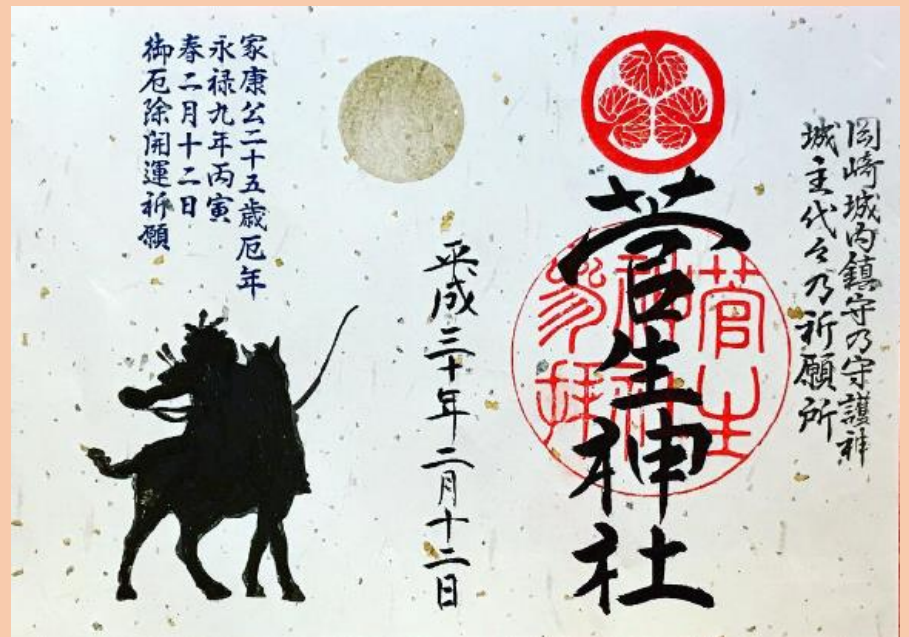 岡崎城内鎮守乃守護神
城主代々乃祈願所
菅生神社
菅生
神社
参拝
平成三十年二月十二日
家康公二十五歳厄年
永禄九年丙寅
春二月十二日
御厄除開運祈願